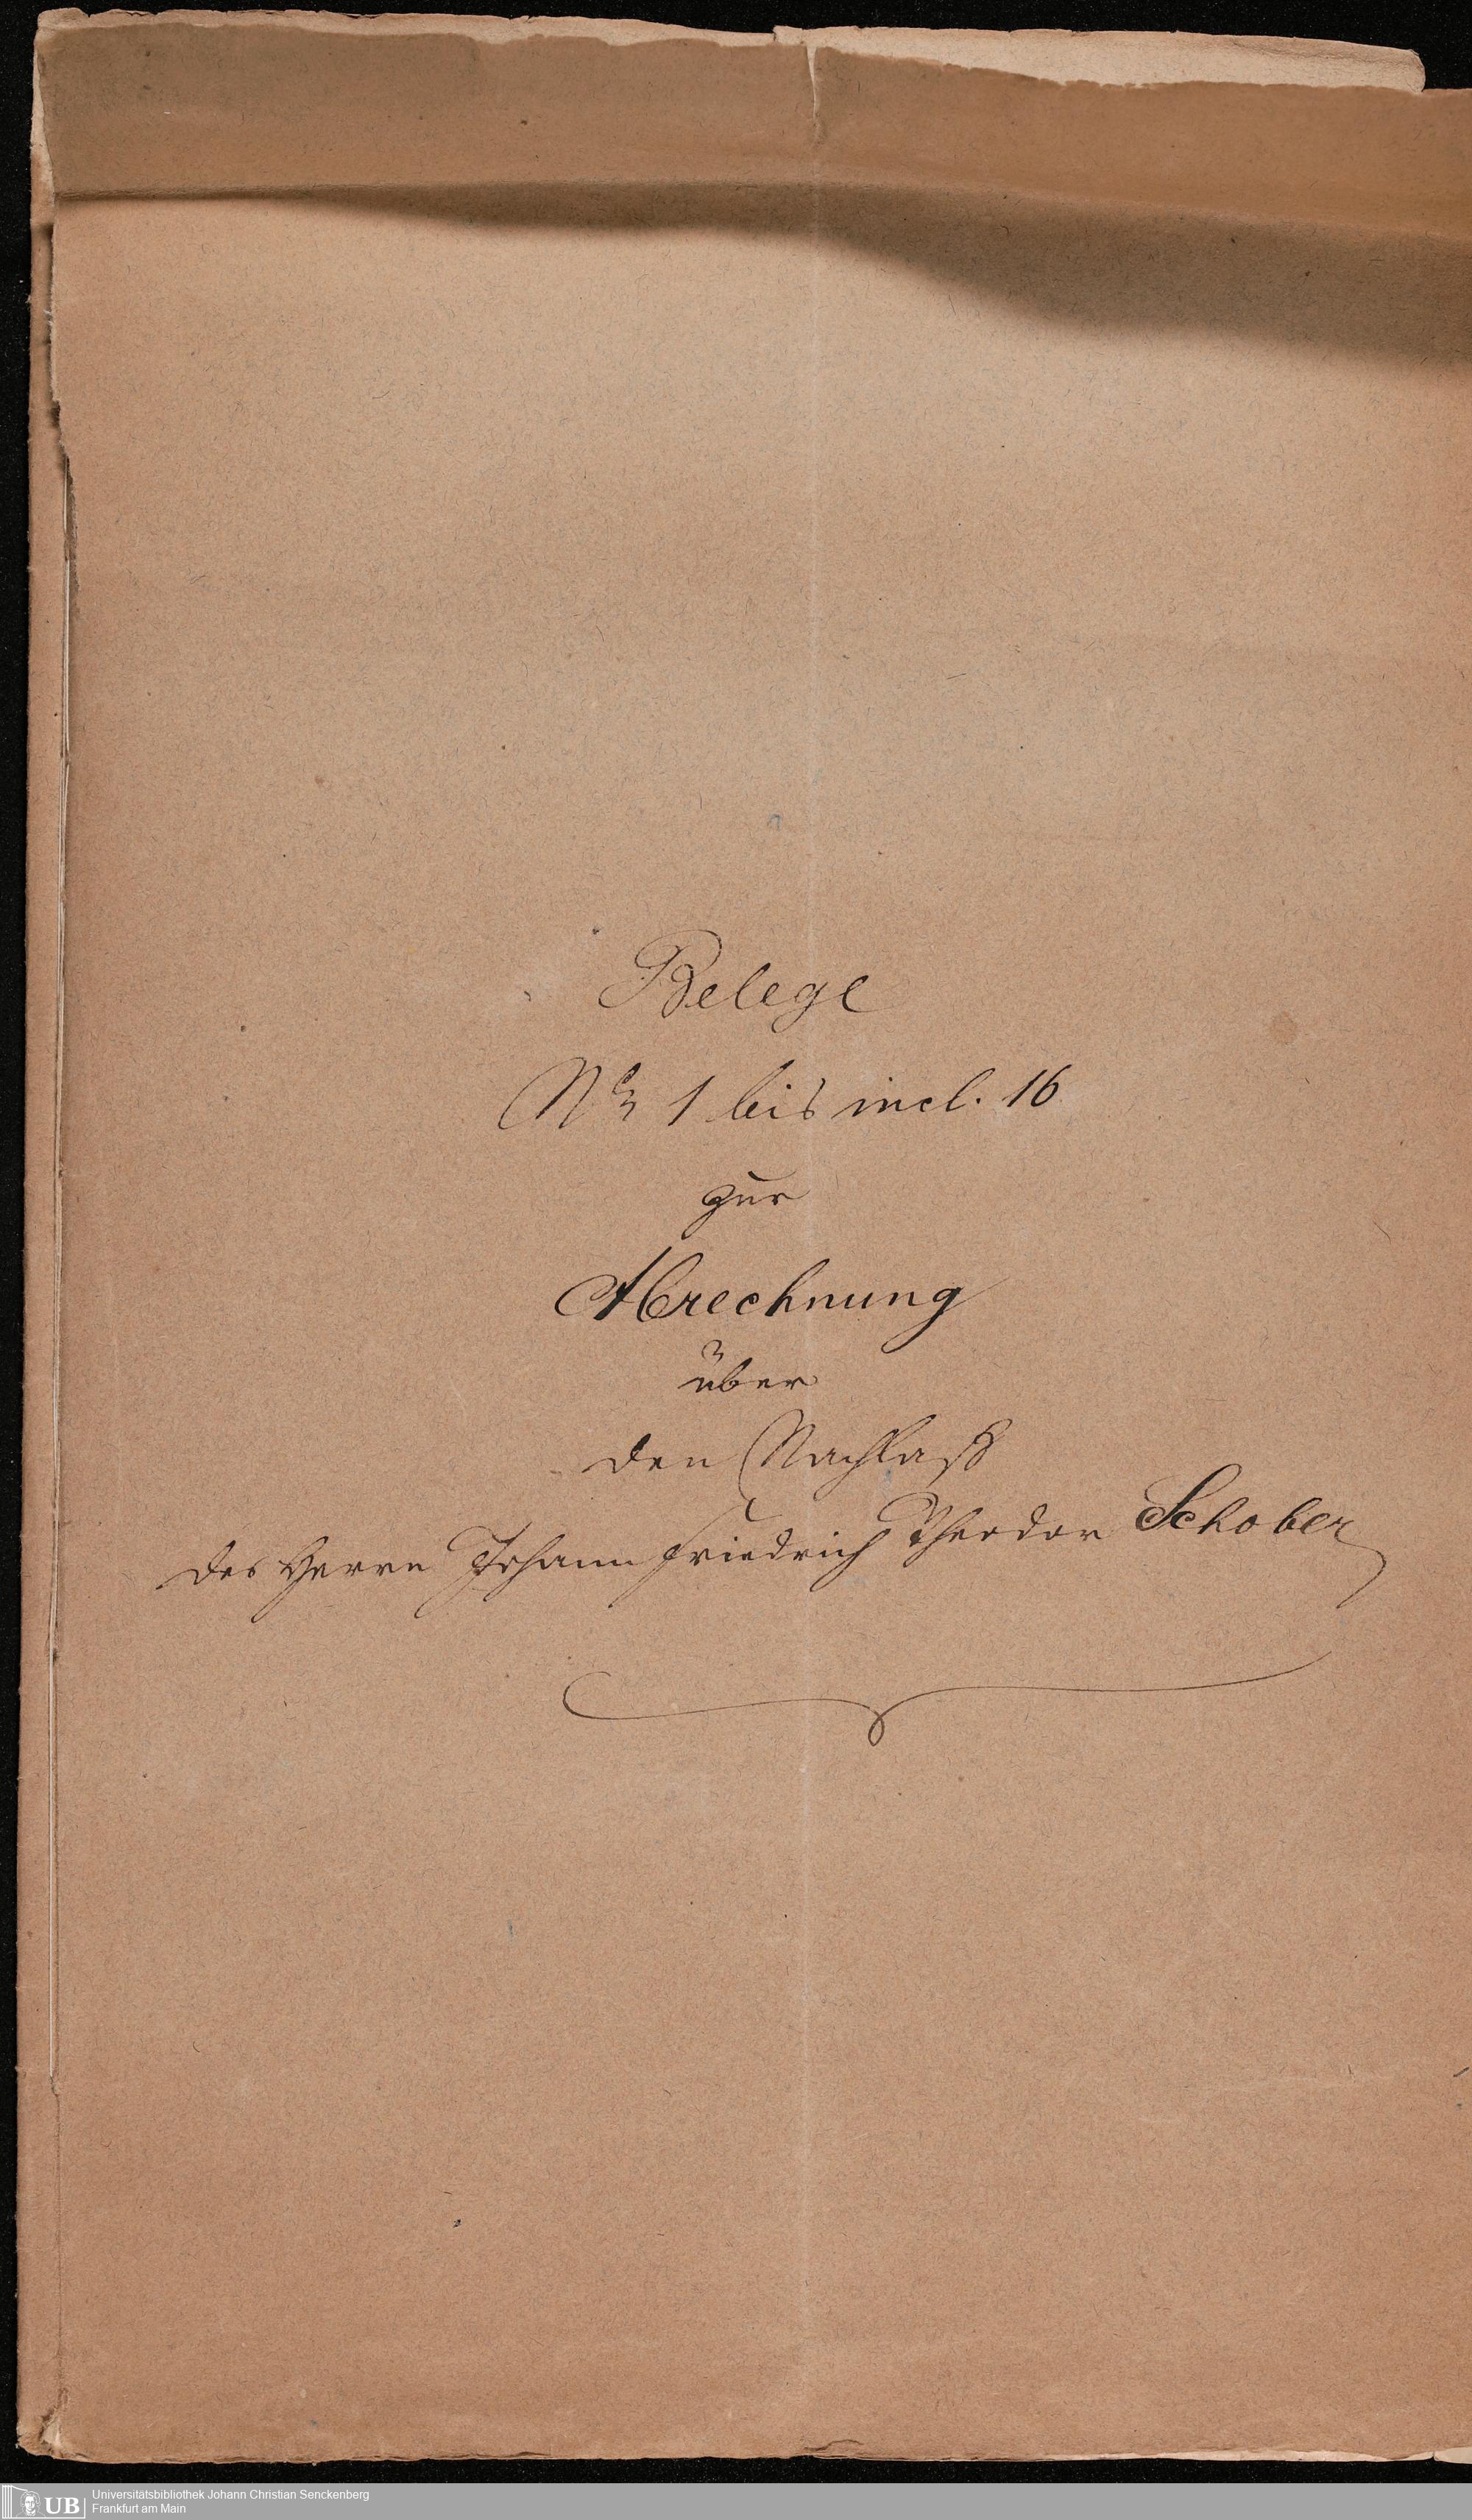 Belege
No 1 bis incl. 16
zur
Abrechnung
über
den Nachlaß
des Herrn Johann Friedrich Theodor Schober
UB
Universitätsbibliothek Johann Christian Senckenberg
Frankfurt am Main